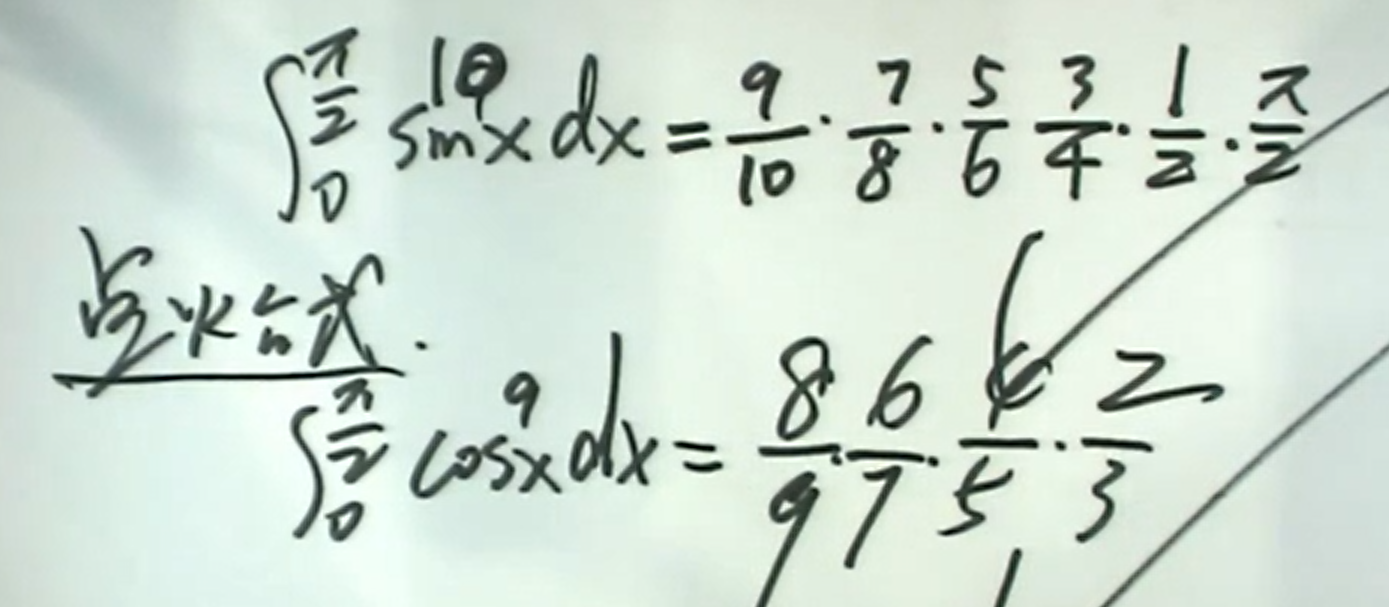 ∫₀^(π/2) sin¹⁰x dx = 9/10 · 7/8 · 5/6 3/4 · 1/2 · π/2
点火公式.
∫₀^(π/2) cos⁹x dx = 8/9 · 6/7 · 4/5 · 2/3